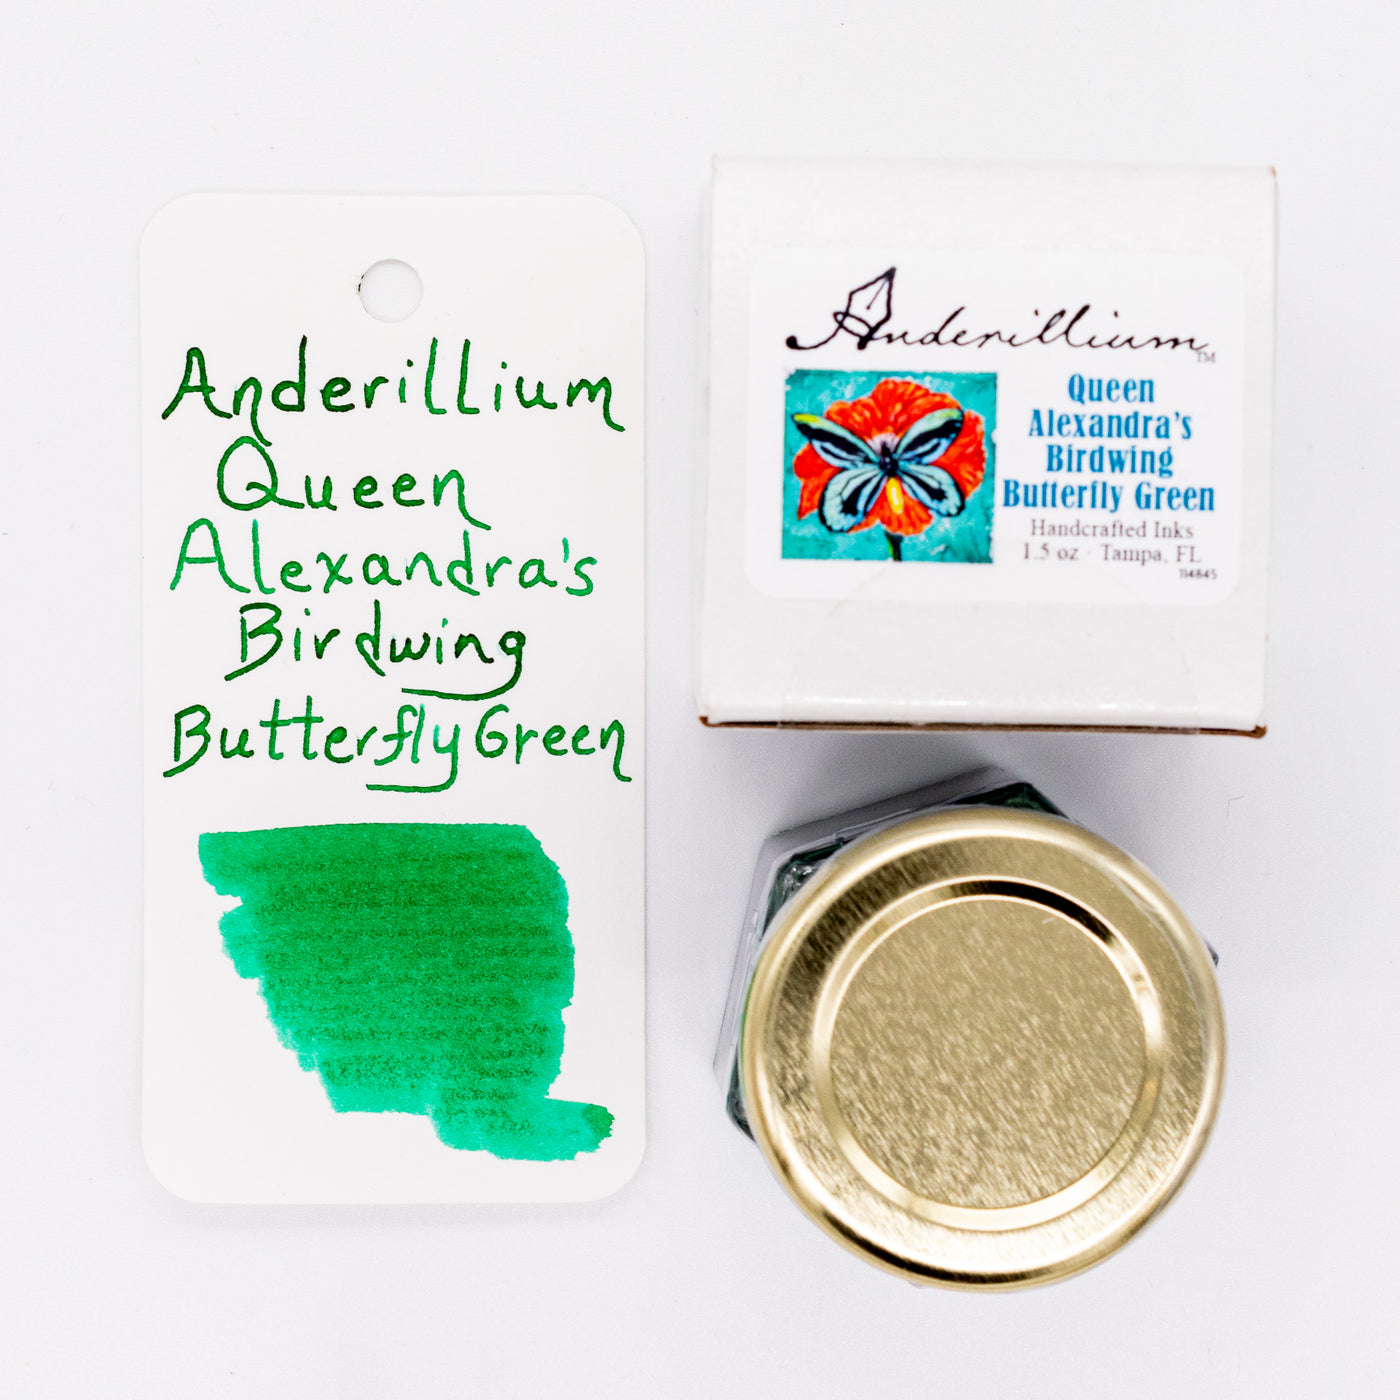 Anderillium
Queen
Alexandra's
Birdwing
Butterfly Green
Anderillium™
Queen
Alexandra's
Birdwing
Butterfly Green
Handcrafted Inks
1.5 oz · Tampa, FL
114845